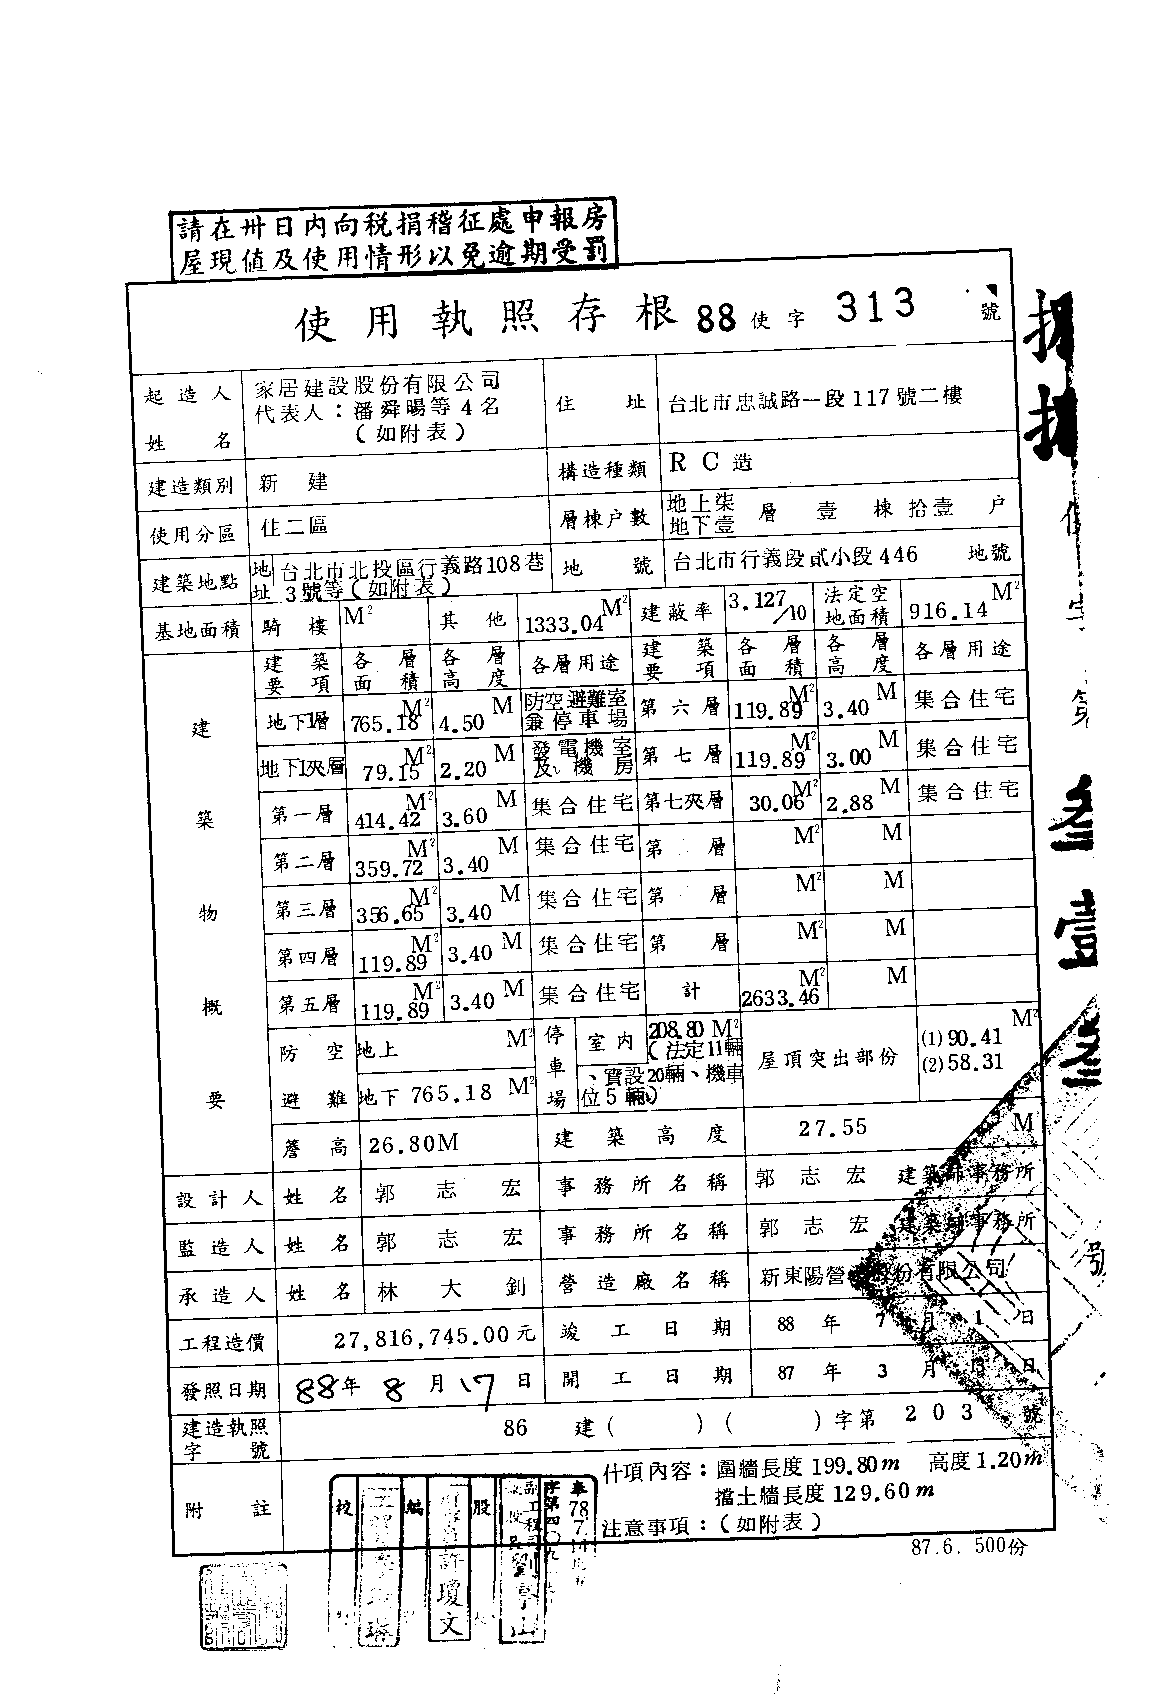 請在卅日內向稅捐稽征處申報房
屋現値及使用情形以免逾期受罰
使用執照存根 88 使字 313 號
起造人姓名 家居建設股份有限公司
代表人：潘舜暘等4名
（如附表）
住址 台北市忠誠路一段117號二樓
建造類別 新建 構造種類 RC造
使用分區 住二區 層棟户數 地上柒地下壹 層 壹 棟 拾壹 户
建築地點 地址 台北市北投區行義路108巷
3號等（如附表）
地號 台北市行義段貳小段446 地號
基地面積 騎樓 M² 其他 1333.04 M² 建蔽率 3.127/10 法定空地面積 916.14 M²
建築物概要
建築要項 各層面積 各層高度 各層用途 建築要項 各層面積 各層高度 各層用途
地下1層 765.18 M² 4.50 M 防空避難室兼停車場 第六層 119.89 M² 3.40 M 集合住宅
地下1夾層 79.15 M² 2.20 M 發電機室及機房 第七層 119.89 M² 3.00 M 集合住宅
第一層 414.42 M² 3.60 M 集合住宅 第七夾層 30.06 M² 2.88 M 集合住宅
第二層 359.72 M² 3.40 M 集合住宅 第 層 M² M
第三層 356.65 M² 3.40 M 集合住宅 第 層 M² M
第四層 119.89 M² 3.40 M 集合住宅 第 層 M² M
第五層 119.89 M² 3.40 M 集合住宅 計 2633.46 M² M
防空避難 地上 M²
地下 765.18 M²
停車場 室內 208.80 M²
（法定11輛
、實設20輛、機車
位5輛）
屋頂突出部份 (1)90.41 M²
(2)58.31
簷高 26.80M 建築高度 27.55 M
設計人 姓名 郭志宏 事務所名稱 郭志宏建築師事務所
監造人 姓名 郭志宏 事務所名稱 郭志宏建築師事務所
承造人 姓名 林大釗 營造廠名稱 新東陽營造股份有限公司
工程造價 27,816,745.00元 竣工日期 88年7月1日
發照日期 88年8月17日 開工日期 87年3月 日
建造執照字號 86 建( )( )字第203 號
附註 什項內容：圍牆長度199.80m 高度1.20m
擋土牆長度129.60m
注意事項：（如附表）
87.6. 500份
校
編
許瓊文
股
副工程司
劉亨山
叁
壹
叁
號